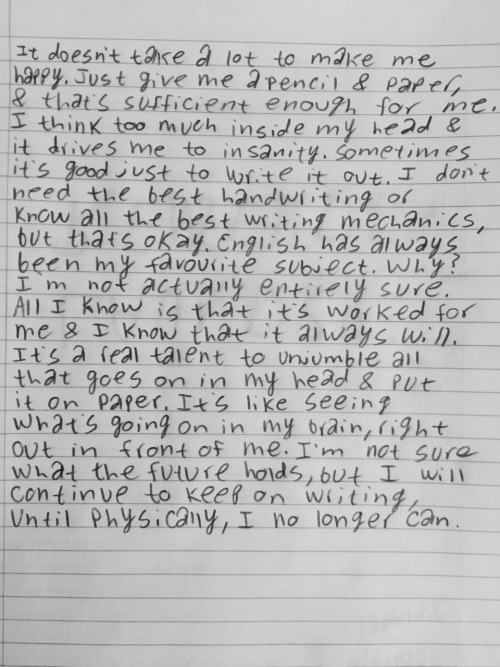 It doesn't take a lot to make me
happy. Just give me a pencil & paper,
& that's sufficient enough for me.
I think too much inside my head &
it drives me to insanity. Sometimes
it's good just to write it out. I don't
need the best handwriting or
know all the best writing mechanics,
but that's okay. English has always
been my favourite subject. Why?
I'm not actually entirely sure.
All I know is that it's worked for
me & I know that it always will.
It's a real talent to unjumble all
that goes on in my head & put
it on paper. It's like seeing
what's going on in my brain, right
out in front of me. I'm not sure
what the future holds, but I will
continue to keep on writing,
until physically, I no longer can.